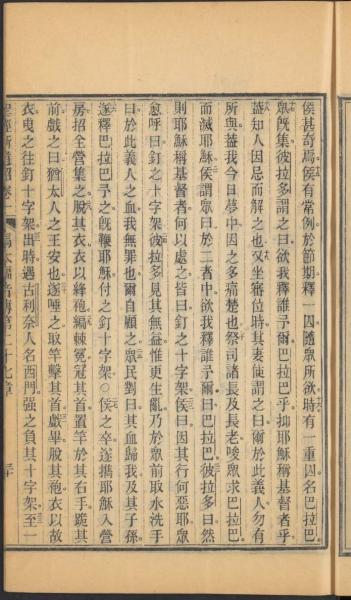 侯甚奇焉侯有常例於節期釋一囚隨眾所欲時有一重囚名巴拉巴
眾旣集彼拉多謂之曰欲我釋誰予爾巴拉巴乎抑耶穌稱基督者乎
蓋知人因忌而解之也又坐審位時其妻使謂之曰爾於此義人勿有
所與蓋我今日夢中因之多痛楚也祭司諸長及長老唆眾求巴拉巴
而滅耶穌侯謂眾曰於二者中欲我釋誰予爾曰巴拉巴彼拉多曰然
則耶穌稱基督者何以處之皆曰釘之十字架侯曰因其行何惡耶眾
愈呼曰釘之十字架彼拉多見其無益惟更生亂乃於眾前取水洗手
曰於此義人之血我無罪也爾自顧之眾民對曰其血歸我及其子孫
遂釋巴拉巴予之旣鞭耶穌付之釘十字架○侯之卒遂攜耶穌入營
房招全營集之脫其衣衣以絳袍編棘冕冠其首置竿於其右手跪其
前戲之曰猶太人之王安也遂唾之取竿擊其首戲畢脫其袍衣以故
衣曳之往釘十字架出時遇古利奈人名西門强之負其十字架至一
馬太福音傳第二十七章